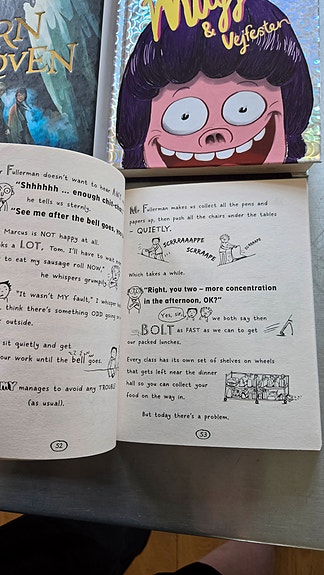 RN
OVEN
& Vejfesten
Mr Fullerman doesn't want to hear ANY
"Shhhhhh ... enough chit-
he tells us sternly.
"See me after the bell goes, you
Marcus is NOT happy at all.
a LOT, Tom. I'll have to wait
to eat my sausage roll NOW,"
he whispers grumpily
"It wasn't MY fault," I whisper
think there's something ODD going
outside.
sit quietly and get
our work until the bell goes.
manages to avoid any TROUBLE
(as usual).
52
Mr Fullerman makes us collect all the pens and
papers up, then push all the chairs under the tables
- QUIETLY.
SCRRAAAAPPE
SCRAAPPE
SCRAAPE
Which takes a while.
"Right, you two – more concentration
in the afternoon, OK?"
Yes, sir, we both say then
BOLT as FAST as we can to get
our packed lunches.
Every class has its own set of shelves on wheels
that gets left near the dinner
hall so you can collect your
food on the way in.
But today there's a problem.
53